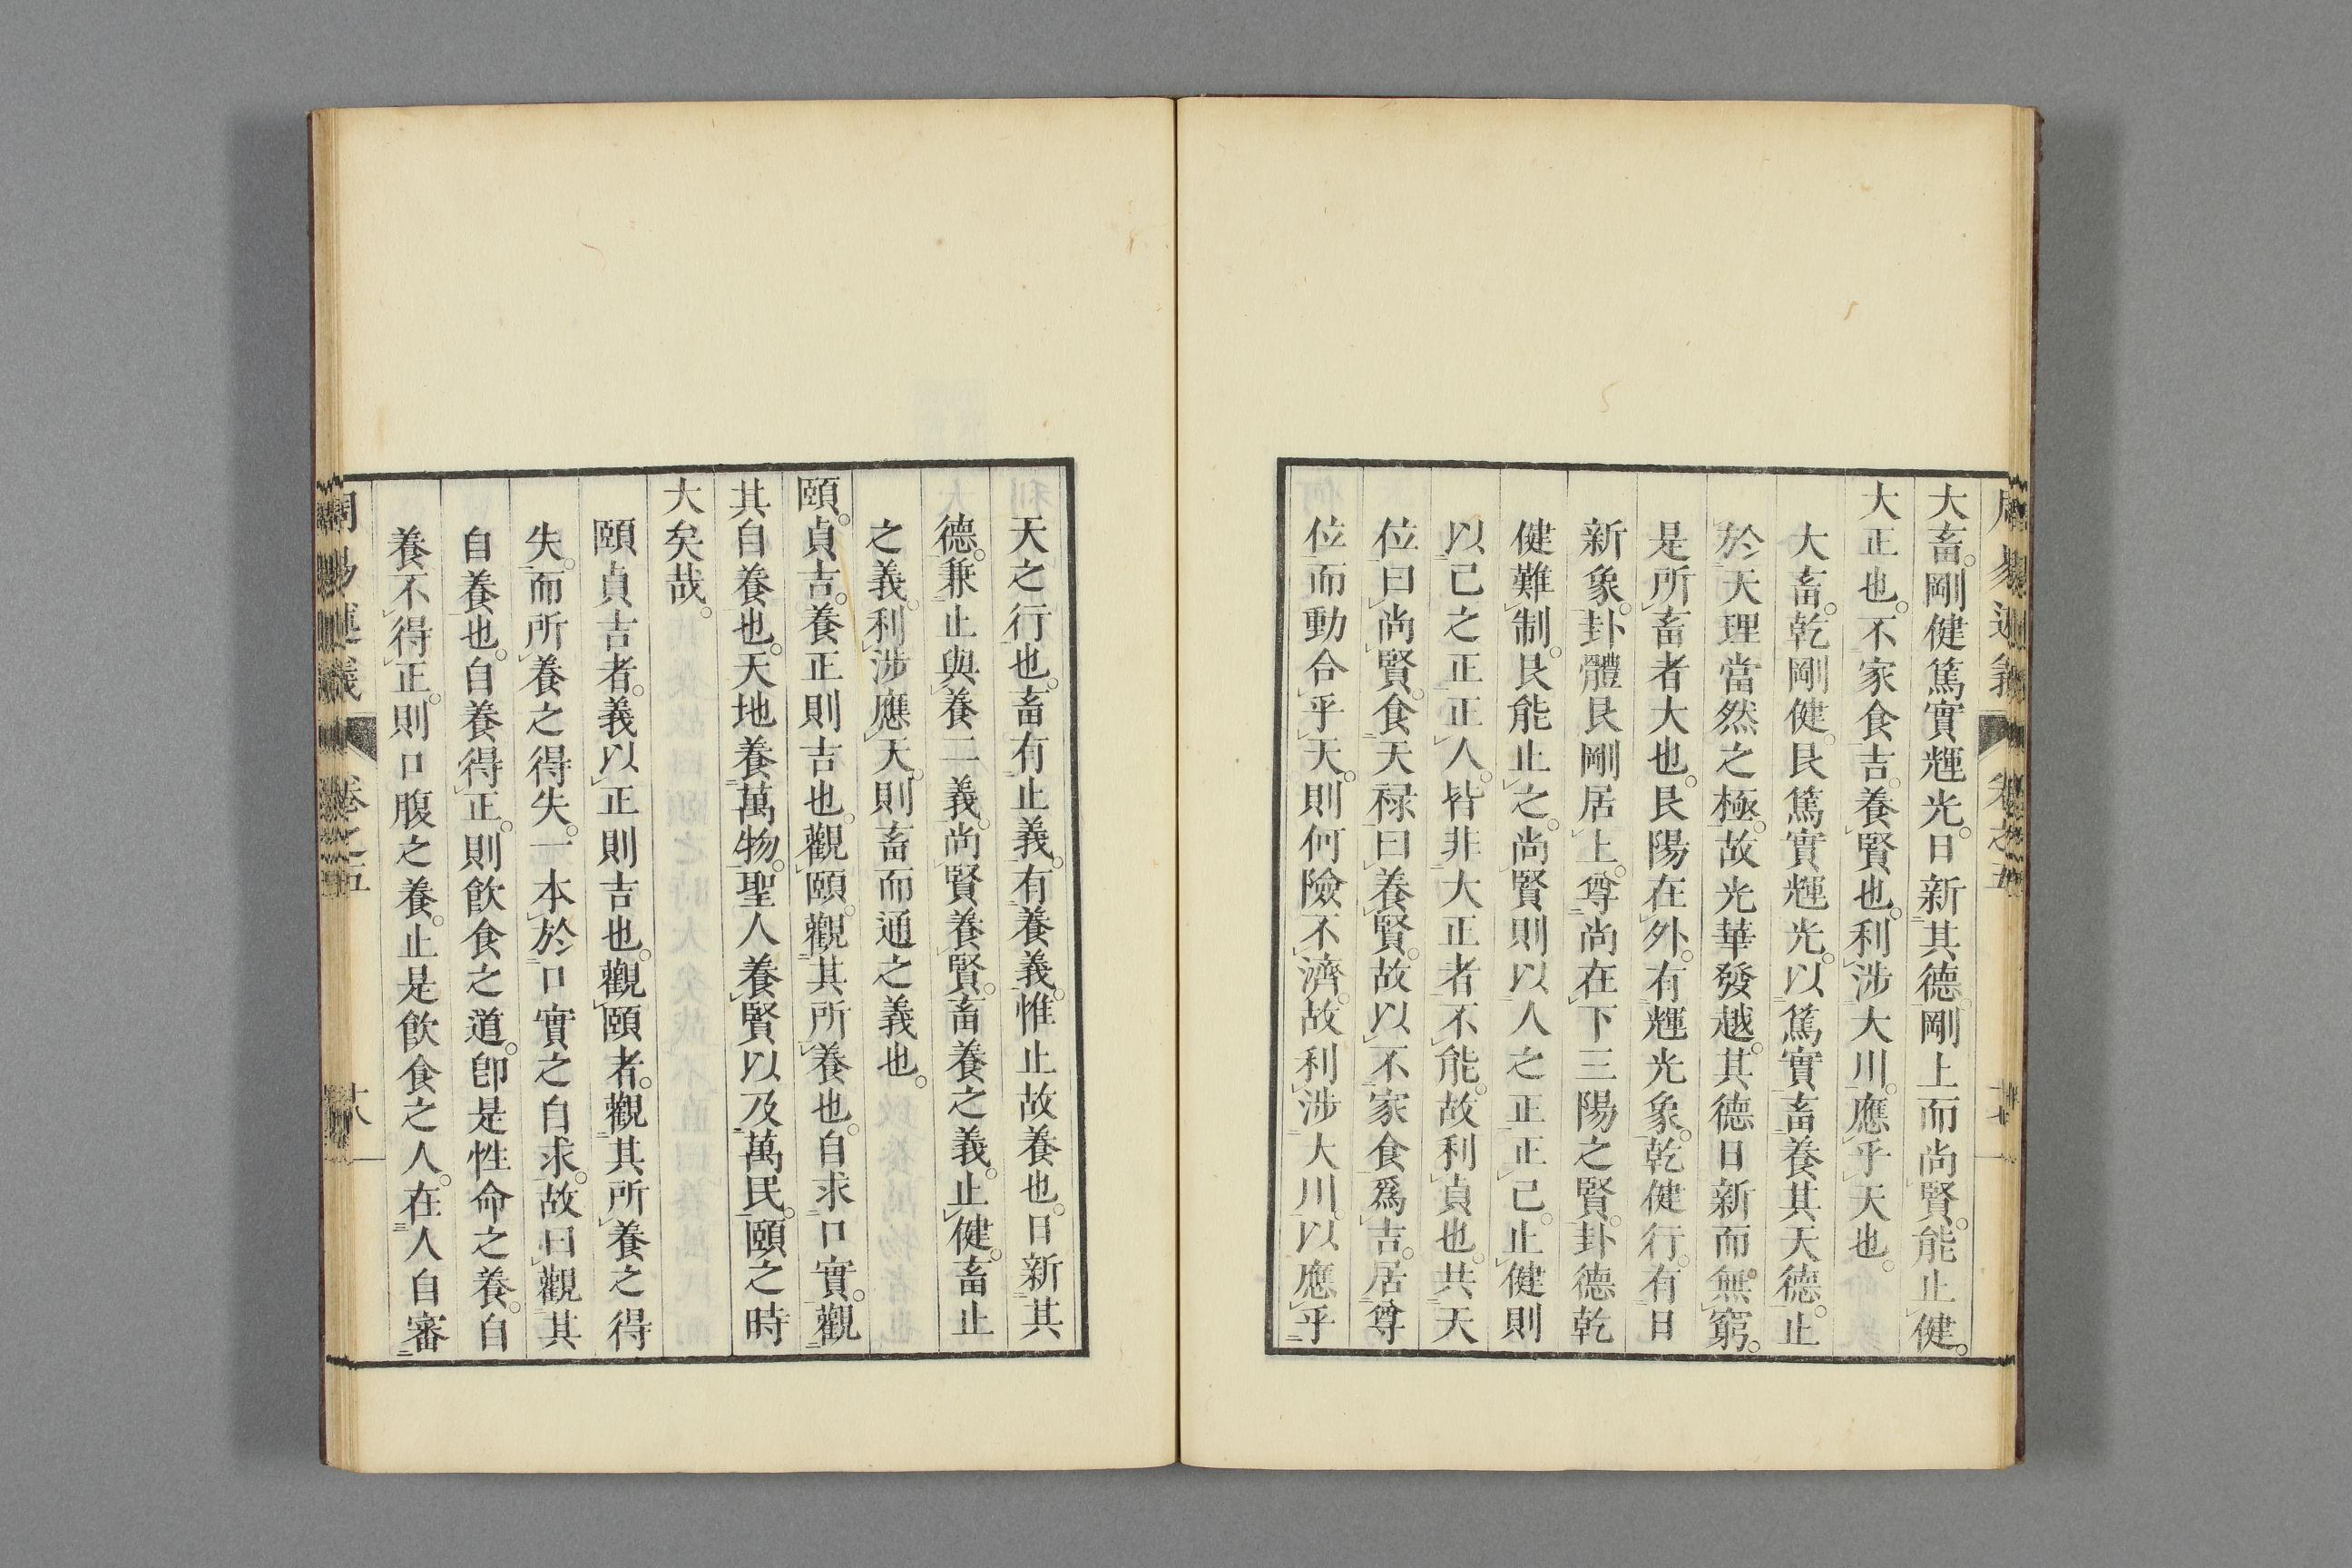 大畜。剛健篤實輝光。日新其德。剛上而尚賢。能止健。
大正也。不家食吉。養賢也。利涉大川。應乎天也。
大畜。乾剛健。艮篤實輝光。以篤實畜養其天德。止
於天理當然之極。故光華發越。其德日新而無窮。
是所畜者大也。艮陽在外。有輝光象。乾健行。有日
新象。卦體艮剛居上。尊尚在下三陽之賢。卦德乾
健難制。艮能止之。尚賢則以人之正正己。止健則
以己之正正人。皆非大正者不能。故利貞也。共天
位曰尚賢。食天祿曰養賢。故以不家食爲吉。居尊
位而動合乎天。則何險不濟。故利涉大川。以應乎
天之行也。畜有止義。有養義。惟止故養也。日新其
德。兼止與養二義。尚賢養賢。畜養之義。止健。畜止
之義。利涉應天。則畜而通之義也。
頤。貞吉。養正則吉也。觀頤。觀其所養也。自求口實。觀
其自養也。天地養萬物。聖人養賢以及萬民。頤之時
大矣哉。
頤貞吉者。義以正則吉也。觀頤者。觀其所養之得
失。而所養之得失。一本於口實之自求。故曰觀其
自養也。自養得正。則飮食之道。卽是性命之養。自
養不得正。則口腹之養。止是飮食之人。在人自審
卷之五